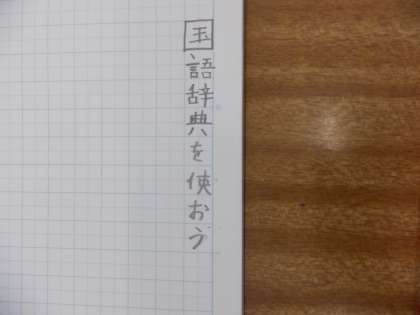 国語辞典を使おう